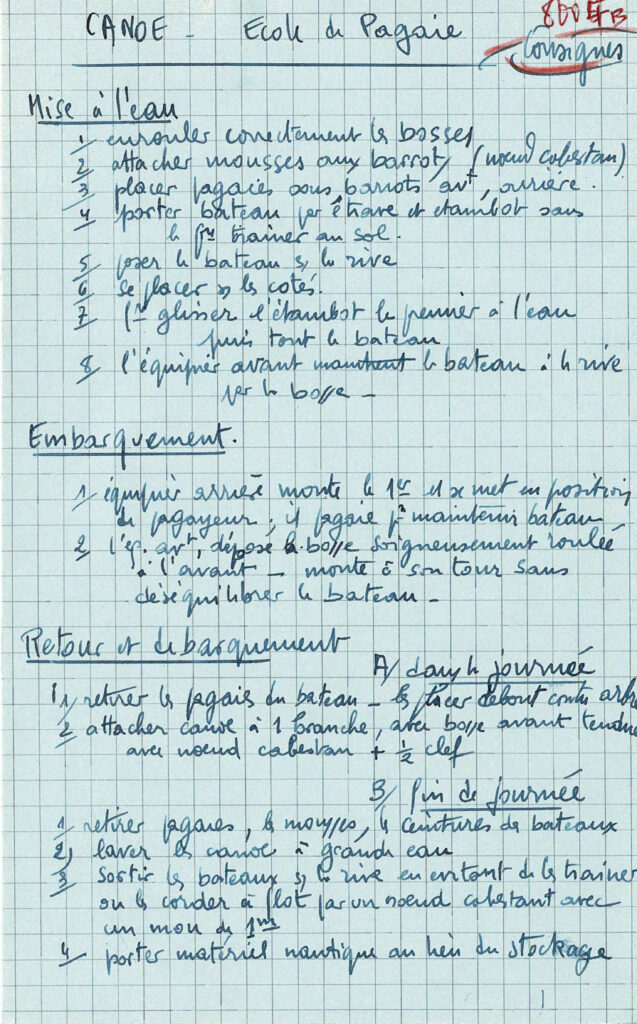 CANOE - Ecole de Pagaie
Consignes
Mise à l'eau
1 enrouler correctement les bosses
2 attacher mousses aux barrots (noeud cabestan)
3 placer pagaies sous barrots avt, arrière.
4 porter bateau par étrave et étambot sans
le traîner au sol.
5 poser le bateau s/ la rive
6 se placer s/ les cotés.
7 glisser l'étambot le premier à l'eau
puis tout le bateau
8 l'équipier avant maintient le bateau à la rive
par la bosse -
Embarquement.
1 équipier arrière monte le 1er et se met en position
de pagayeur, il pagaie pr maintenir bateau
2 l'eq. avt, dépose la bosse soigneusement roulée
à l'avant - monte à son tour sans
déséquilibrer le bateau -
Retour et debarquement
A/ dans la journée
1 retirer les pagaies du bateau - les placer debout contre arbre
2 attacher canoe à 1 branche, avec bosse avant tendue
avec noeud cabestan + 1/2 clef
B/ fin de journée
1 retirer pagaies, les mousses, ceintures de bateaux
2 laver les canoe à grande eau
3 sortir les bateaux s/ la rive en evitant de les trainer
ou les à flot par un noeud cabestant avec
un mou de 1m
4 porter matériel nautique au lieu du stockage